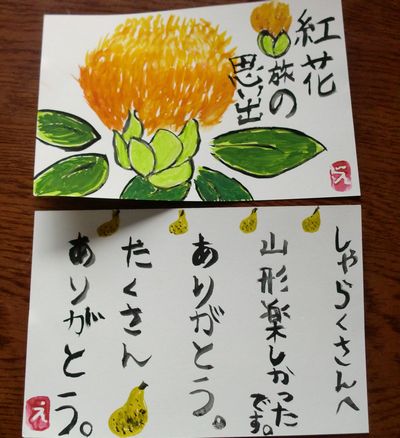 紅花
旅の
思い出
え
しゃらくさんへ
山形楽しかった
です。
ありがとう。
たくさん
ありがとう。
え